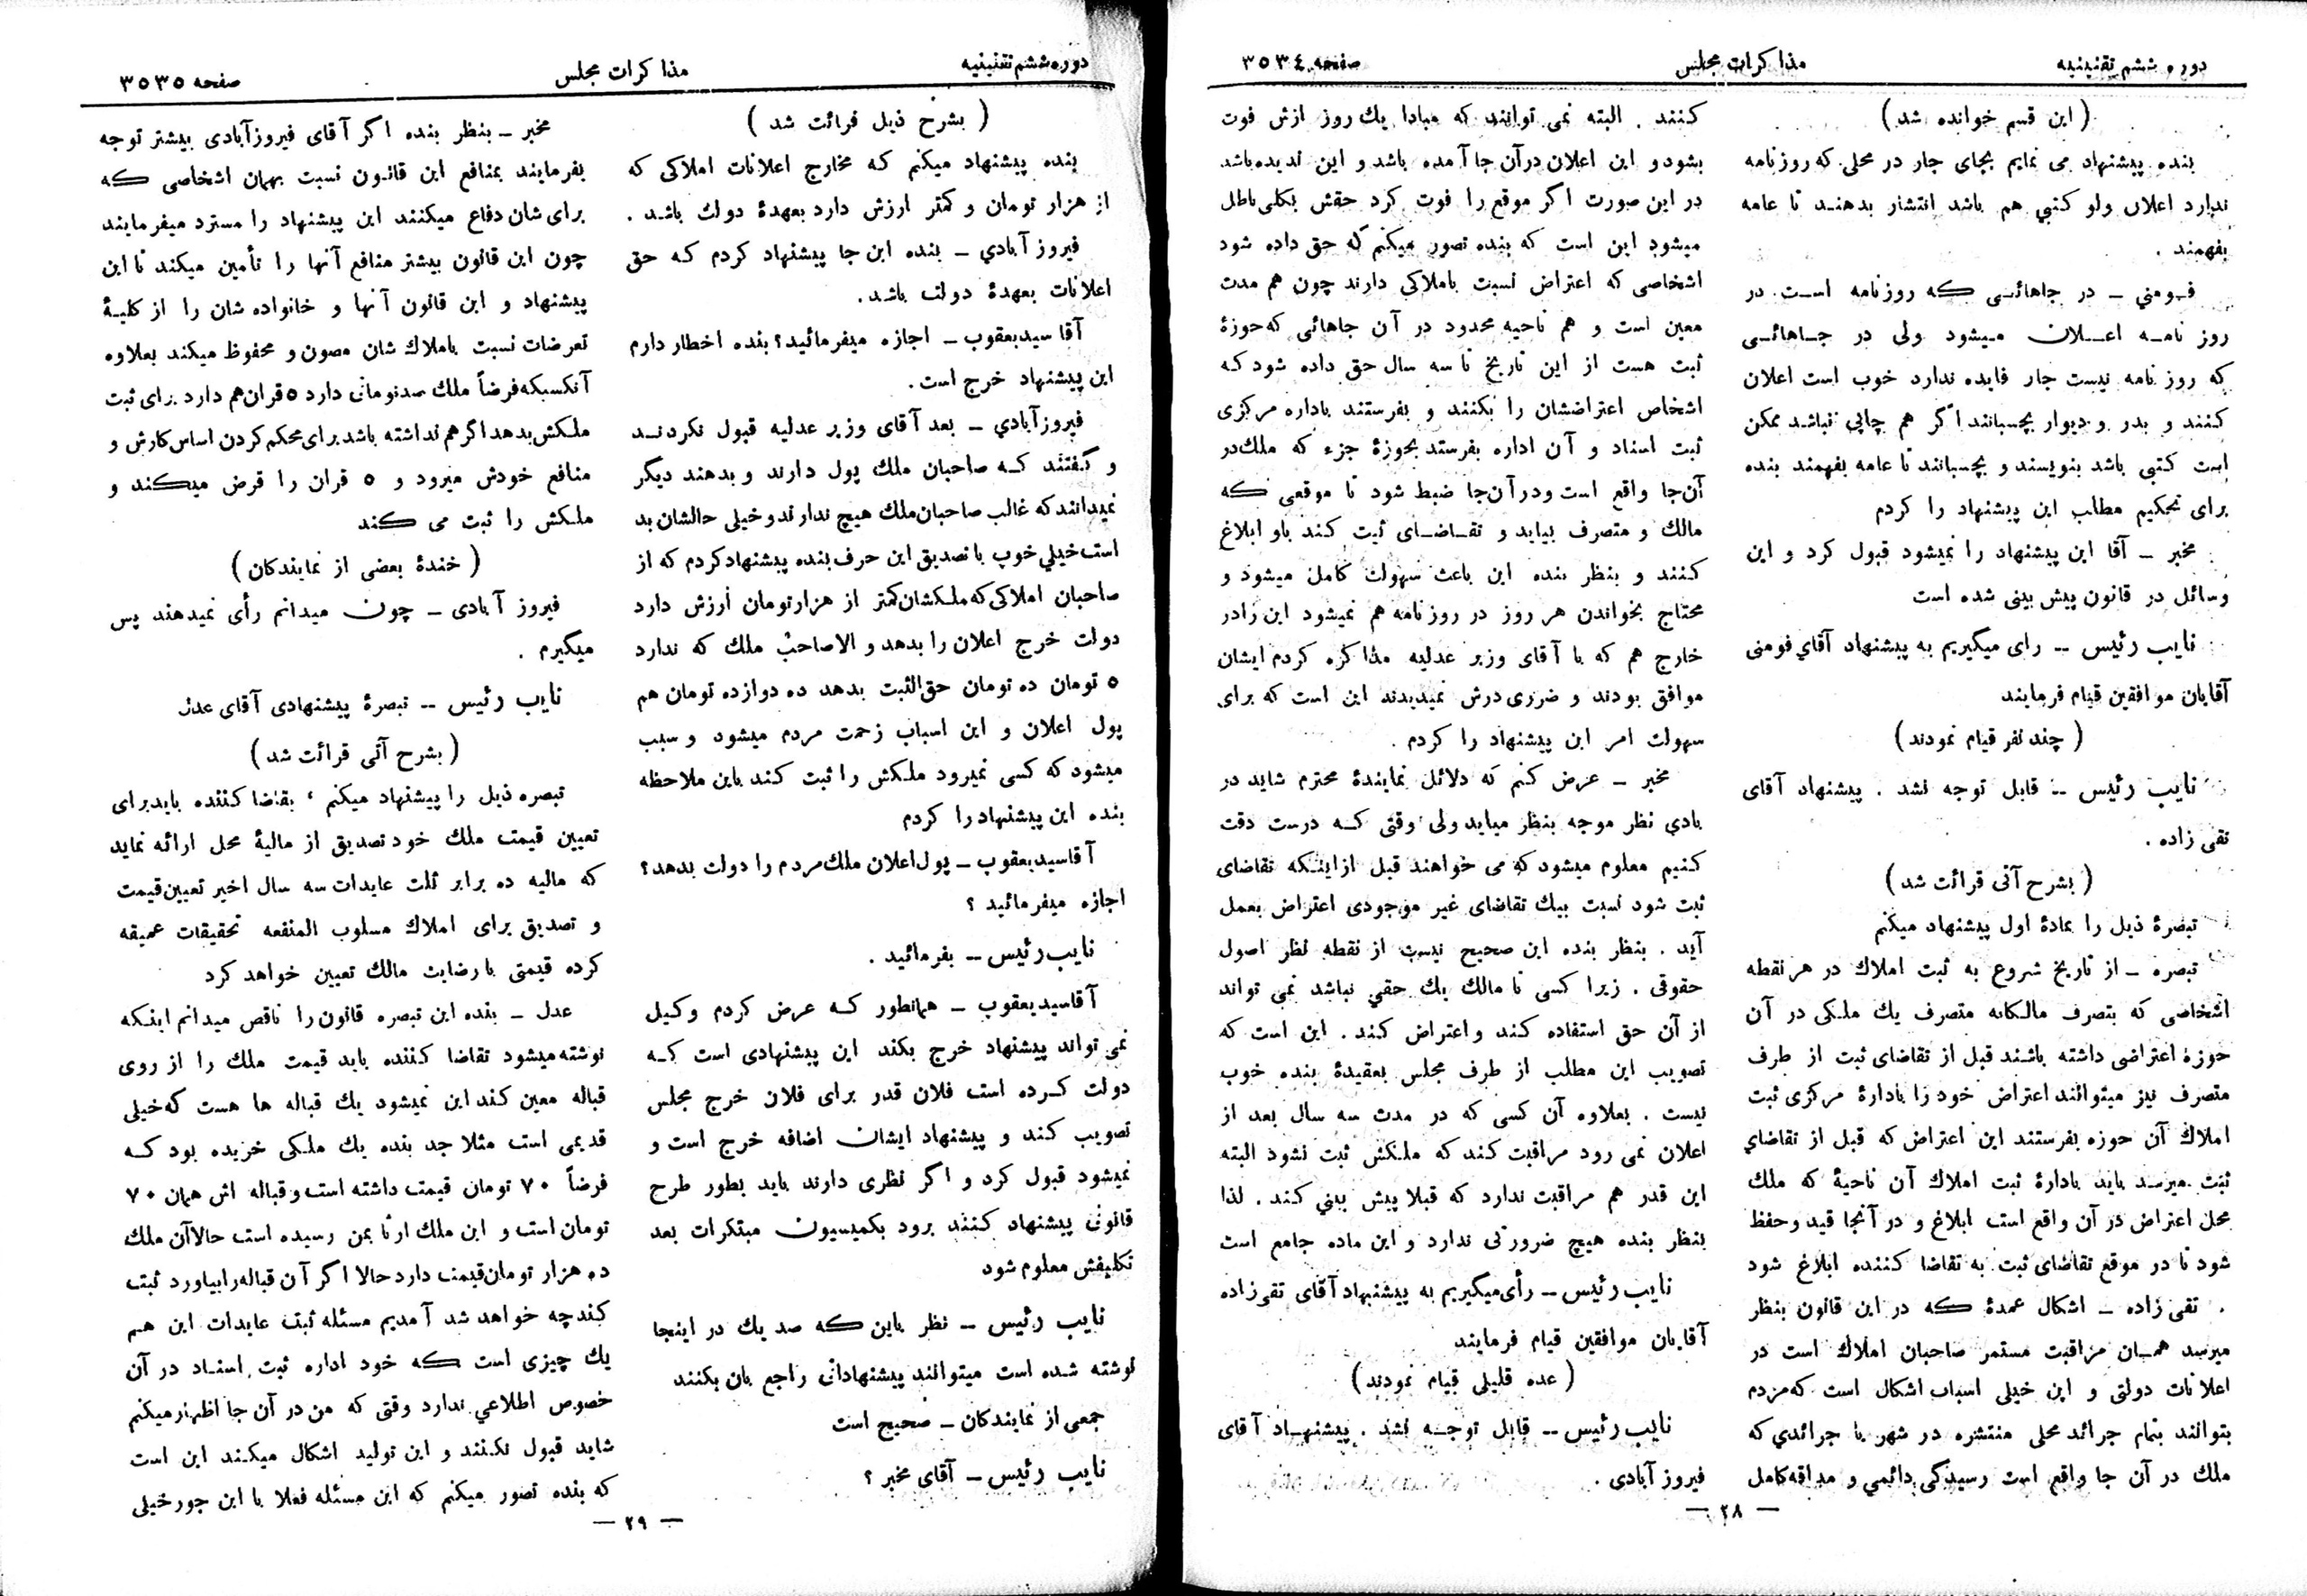 دوره ششم تقنینیه
مذاکرات مجلس
صفحه ۳۵۳٤
(این قسم خوانده شد)
بنده پیشنهاد می نمایم بجای جار در محلی که روزنامه
ندارد اعلان ولو کتبی هم باشد انتشار بدهند تا عامه
بفهمند .
فومنی ـ در جاهائی که روزنامه است در
روز نامه اعلان میشود ولی در جاهائی
که روز نامه نیست جار فایده ندارد خوب است اعلان
کنند و بدر و دیوار بچسبانند اگر هم چاپی نباشد ممکن
است کتبی باشد بنویسند و بچسبانند تا عامه بفهمند بنده
برای تحکیم مطلب این پیشنهاد را کردم
مخبر ـ آقا این پیشنهاد را نمیشود قبول کرد و این
وسائل در قانون پیش بینی شده است
نایب رئیس ـ رای میگیریم به پیشنهاد آقای فومنی
آقایان موافقین قیام فرمایند
(چند نفر قیام نمودند)
نایب رئیس ـ قابل توجه نشد . پیشنهاد آقای
تقی زاده .
(بشرح آتی قرائت شد)
تبصرهٔ ذیل را بمادهٔ اول پیشنهاد میکنم
تبصره ـ از تاریخ شروع به ثبت املاک در هر نقطه
اشخاصی که بتصرف مالکانه متصرف یک ملکی در آن
حوزه اعتراضی داشته باشند قبل از تقاضای ثبت از طرف
متصرف نیز میتوانند اعتراض خود را بادارهٔ مرکزی ثبت
املاک آن حوزه بفرستند این اعتراض که قبل از تقاضای
ثبت میرسد باید بادارهٔ ثبت املاک آن ناحیهٔ که ملک
محل اعتراض در آن واقع است ابلاغ و در آنجا قید و حفظ
شود تا در موقع تقاضای ثبت به تقاضا کننده ابلاغ شود
تقی زاده ـ اشکال عمدهٔ که در این قانون بنظر
میرسد همان مراقبت مستمر صاحبان املاک است در
اعلانات دولتی و این خیلی اسباب اشکال است که مردم
بتوانند بتمام جرائد محلی منتشره در شهر یا جرائدی که
ملک در آن جا واقع است رسیدگی دائمی و مداقه کامل
کنند . البته نمی توانند که مبادا یک روز ازش فوت
بشود و این اعلان در آن جا آمده باشد و این ندیده باشد
در این صورت اگر موقع را فوت کرد حقش بکلی باطل
میشود این است که بنده تصور میکنم که حق داده شود
اشخاصی که اعتراض نسبت باملاکی دارند چون هم مدت
معین است و هم ناحیه محدود در آن جاهائی که حوزهٔ
ثبت هست از این تاریخ تا سه سال حق داده شود که
اشخاص اعتراضشان را بکنند و بفرستند باداره مرکزی
ثبت اسناد و آن اداره بفرستد بحوزهٔ جزء که ملک در
آن جا واقع است و در آن جا ضبط شود تا موقعی که
مالک و متصرف بیاید و تقاضای ثبت کند باو ابلاغ
کنند و بنظر بنده این باعث سهولت کامل میشود و
محتاج بخواندن هر روز در روزنامه هم نمیشود این را در
خارج هم که با آقای وزیر عدلیه مذاکره کردم ایشان
موافق بودند و ضرری درش نمیدیدند این است که برای
سهولت امر این پیشنهاد را کردم .
مخبر ـ عرض کنم که دلائل نمایندهٔ محترم شاید در
بادی نظر موجه بنظر میاید ولی وقتی که درست دقت
کنیم معلوم میشود که می خواهند قبل از اینکه تقاضای
ثبت شود نسبت بیک تقاضای غیر موجودی اعتراض بعمل
آید . بنظر بنده این صحیح نیست از نقطه نظر اصول
حقوقی . زیرا کسی تا مالک یک حقی نباشد نمی تواند
از آن حق استفاده کند و اعتراض کند . این است که
تصویب این مطلب از طرف مجلس بعقیدهٔ بنده خوب
نیست . بعلاوه آن کسی که در مدت سه سال بعد از
اعلان نمی رود مراقبت کند که ملکش ثبت نشود البته
این قدر هم مراقبت ندارد که قبلا پیش بینی کند . لذا
بنظر بنده هیچ ضرورتی ندارد و این ماده جامع است
نایب رئیس ـ رأی میگیریم به پیشنهاد آقای تقی زاده
آقایان موافقین قیام فرمایند
(عده قلیلی قیام نمودند)
نایب رئیس ـ قابل توجه نشد . پیشنهاد آقای
فیروز آبادی .
— ۲۸ —
دوره ششم تقنینیه
مذاکرات مجلس
صفحه ۳۵۳۵
(بشرح ذیل قرائت شد)
بنده پیشنهاد میکنم که مخارج اعلانات املاکی که
از هزار تومان و کمتر ارزش دارد بعهدهٔ دولت باشد .
فیروز آبادی ـ بنده این جا پیشنهاد کردم که حق
اعلانات بعهدهٔ دولت باشد .
آقا سید یعقوب ـ اجازه میفرمائید؟ بنده اخطار دارم
این پیشنهاد خرج است .
فیروزآبادی ـ بعد آقای وزیر عدلیه قبول نکردند
و گفتند که صاحبان ملک پول دارند و بدهند دیگر
نمیدانند که غالب صاحبان ملک هیچ ندارند و خیلی حالشان بد
است خیلی خوب با تصدیق این حرف بنده پیشنهاد کردم که از
صاحبان املاکی که ملکشان کمتر از هزار تومان ارزش دارد
دولت خرج اعلان را بدهد و الا صاحب ملک که ندارد
۵ تومان ده تومان حق الثبت بدهد ده دوازده تومان هم
پول اعلان و این اسباب زحمت مردم میشود و سبب
میشود که کسی نمیرود ملکش را ثبت کند باین ملاحظه
بنده این پیشنهاد را کردم
آقا سید یعقوب ـ پول اعلان ملک مردم را دولت بدهد؟
اجازه میفرمائید ؟
نایب رئیس ـ بفرمائید .
آقا سید یعقوب ـ همانطور که عرض کردم وکیل
نمی تواند پیشنهاد خرج بکند این پیشنهادی است که
دولت کرده است فلان قدر برای فلان خرج مجلس
تصویب کند و پیشنهاد ایشان اضافه خرج است و
نمیشود قبول کرد و اگر نظری دارند باید بطور طرح
قانونی پیشنهاد کنند برود بکمیسیون مبتکرات بعد
تکلیفش معلوم شود
نایب رئیس ـ نظر باین که صد یک در اینجا
نوشته شده است میتوانند پیشنهاداتی راجع بان بکنند
جمعی از نمایندگان ـ صحیح است
نایب رئیس ـ آقای مخبر ؟
مخبر ـ بنظر بنده اگر آقای فیروزآبادی بیشتر توجه
بفرمایند بمنافع این قانون نسبت بهمان اشخاصی که
برای شان دفاع میکنند این پیشنهاد را مسترد میفرمایند
چون این قانون بیشتر منافع آنها را تأمین میکند تا این
پیشنهاد و این قانون آنها و خانواده شان را از کلیهٔ
تعرضات نسبت باملاک شان مصون و محفوظ میکند بعلاوه
آنکسیکه فرضاً ملک صد تومانی دارد ۵ قران هم دارد برای ثبت
ملکش بدهد اگر هم نداشته باشد برای محکم کردن اساس کارش و
منافع خودش میرود و ۵ قران را قرض میکند و
ملکش را ثبت می کند
(خندهٔ بعضی از نمایندگان)
فیروز آبادی ـ چون میدانم رأی نمیدهند پس
میگیرم .
نایب رئیس ـ تبصرهٔ پیشنهادی آقای عدل
(بشرح آتی قرائت شد)
تبصره ذیل را پیشنهاد میکنم ، تقاضا کننده باید برای
تعیین قیمت ملک خود تصدیق از مالیهٔ محل ارائه نماید
که مالیه ده برابر ثلث عایدات سه سال اخیر تعیین قیمت
و تصدیق برای املاک مسلوب المنفعه تحقیقات عمیقه
کرده قیمتی با رضایت مالک تعیین خواهد کرد
عدل ـ بنده این تبصره قانون را ناقص میدانم اینکه
نوشته میشود تقاضا کننده باید قیمت ملک را از روی
قباله معین کند این نمیشود یک قباله ها هست که خیلی
قدیمی است مثلا جد بنده یک ملکی خریده بود که
فرضاً ۷۰ تومان قیمت داشته است و قباله اش همان ۷۰
تومان است و این ملک ارثا بمن رسیده است حالا آن ملک
ده هزار تومان قیمت دارد حالا اگر آن قباله را بیاورد ثبت
کند چه خواهد شد آمدیم مسئله ثبت عایدات این هم
یک چیزی است که خود اداره ثبت اسناد در آن
خصوص اطلاعی ندارد وقتی که من در آن جا اظهار میکنم
شاید قبول نکنند و این تولید اشکال میکند این است
که بنده تصور میکنم که این مسئله فعلا با این جور خیلی
— ۲۹ —